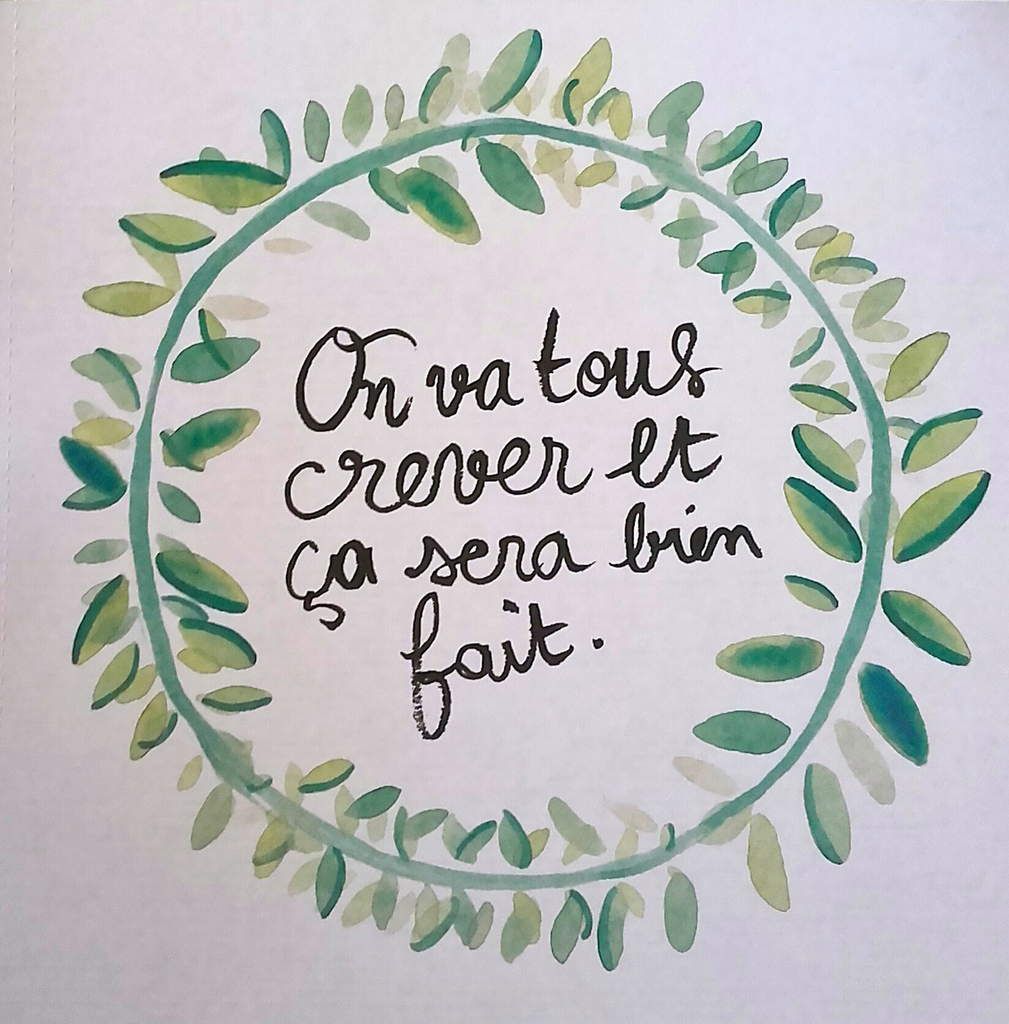 On va tous
crever et
ça sera bien
fait.